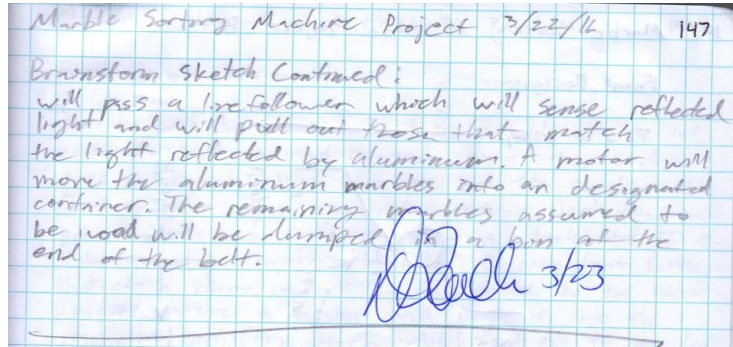 Marble Sorting Machine Project 3/22/16 147
Brainstorm Sketch Continued:
will pass a line follower which will sense reflected
light and will pull out those that match
the light reflected by aluminum. A motor will
move the aluminum marbles into an designated
container. The remaining marbles assumed to
be wood will be dumped in a bin at the
end of the belt.
3/23